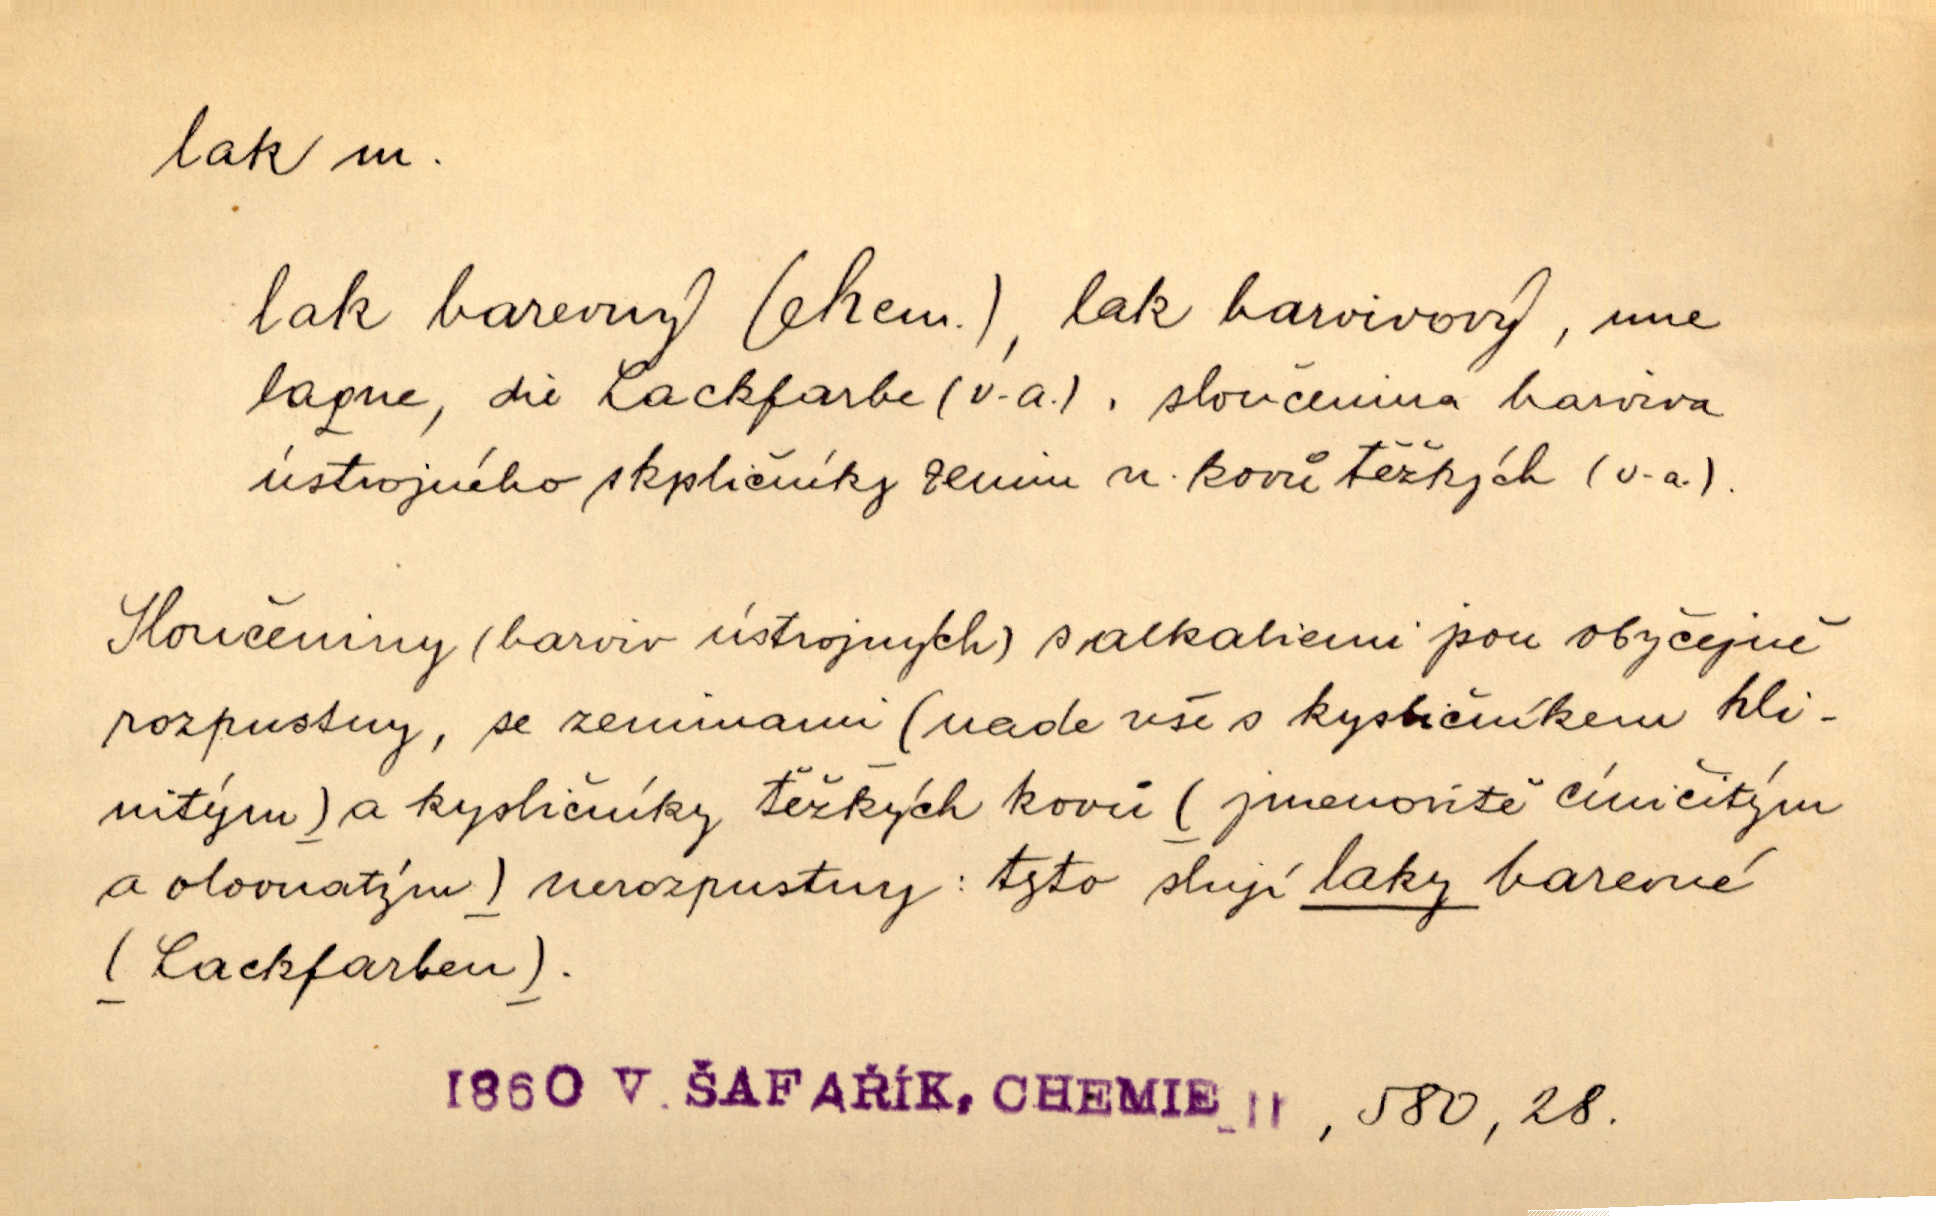 lak m.
lak barevný (chem.), lak barvivový, une
laque, die Lackfarbe (v-a.). sloučenina barviva
ústrojného s kysličníky zemin n. kovů těžkých (v-a.).
Sloučeniny (barviv ústrojných) s alkaliemi jsou obyčejně
rozpustny, se zeminami (nade vše s kysličníkem hli-
nitým) a kysličníky těžkých kovů (jmenovitě cíničitým
a olovnatým) nerozpustny: tyto slují laky barevné
(Lackfarben).
1860 V. ŠAFAŘÍK, CHEMIE II, 580, 28.